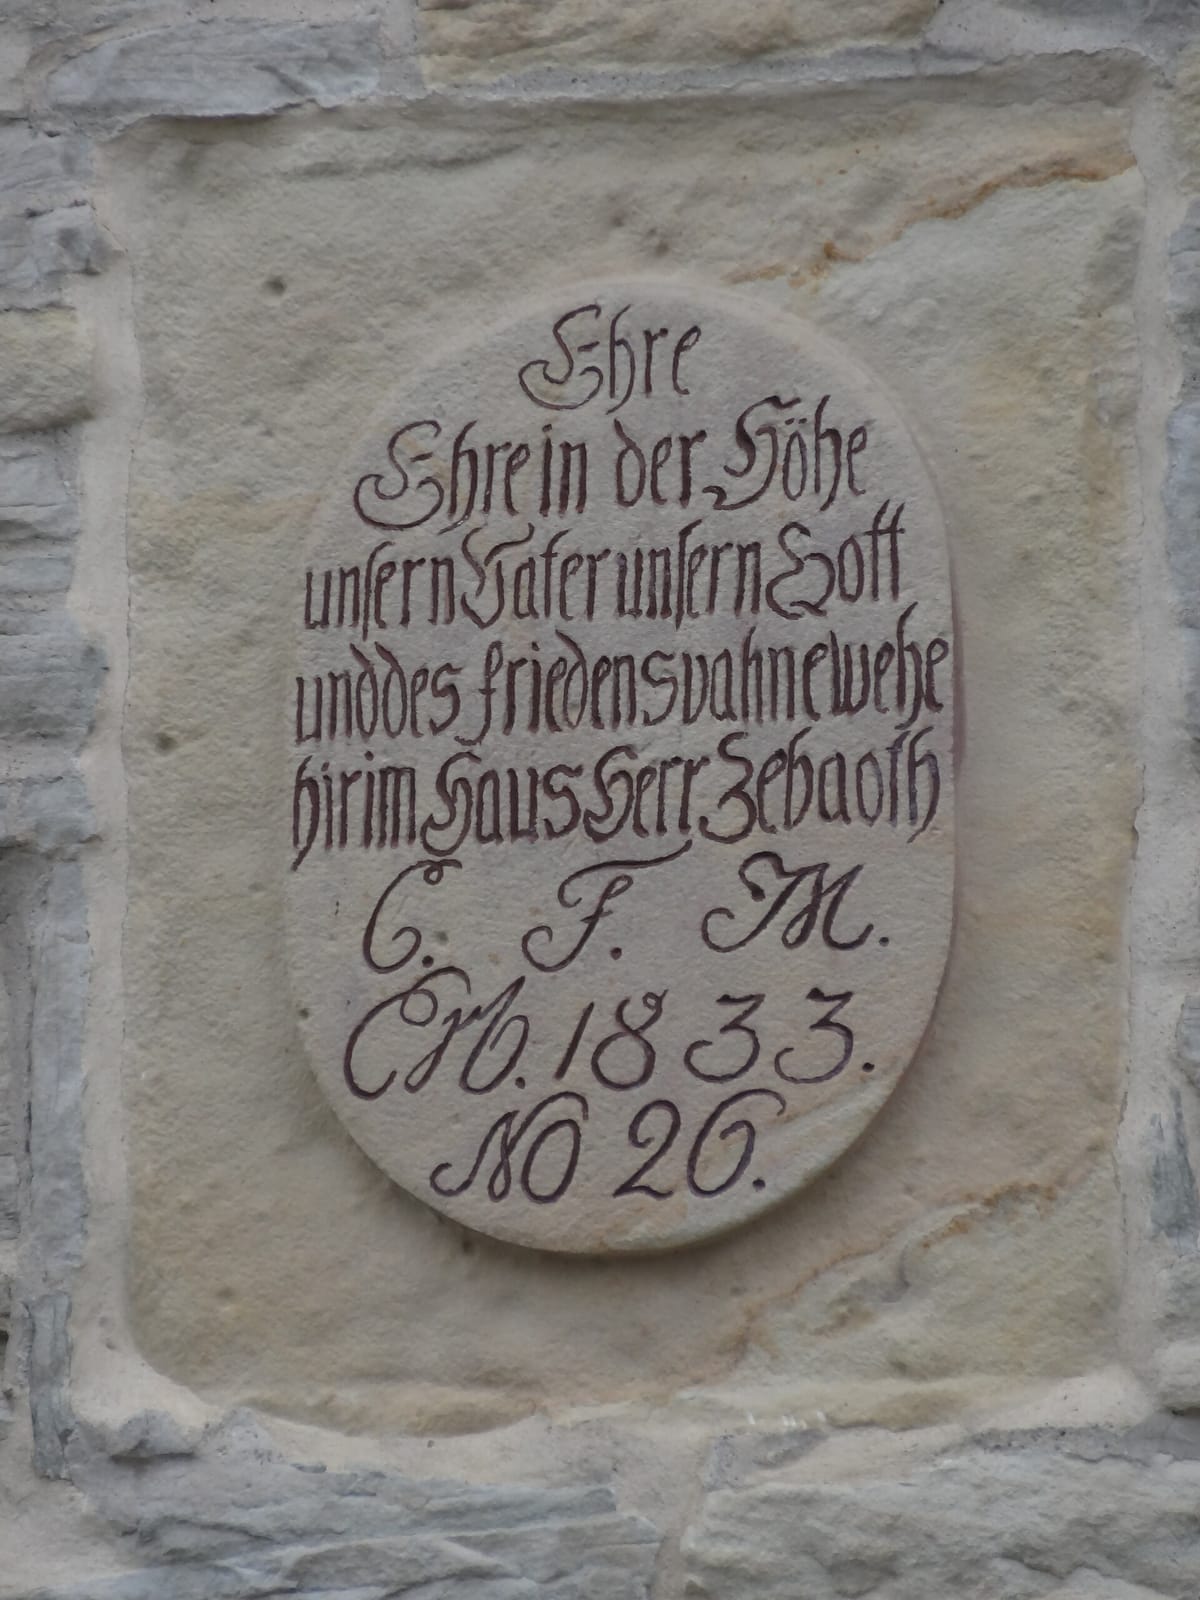 Ehre
Ehre in der Höhe
unsern Vater unsern Gott
und des friedens vahne wehe
hir im Haus Herr Zebaoth
C. F. M.
Erb. 1833.
NO 26.